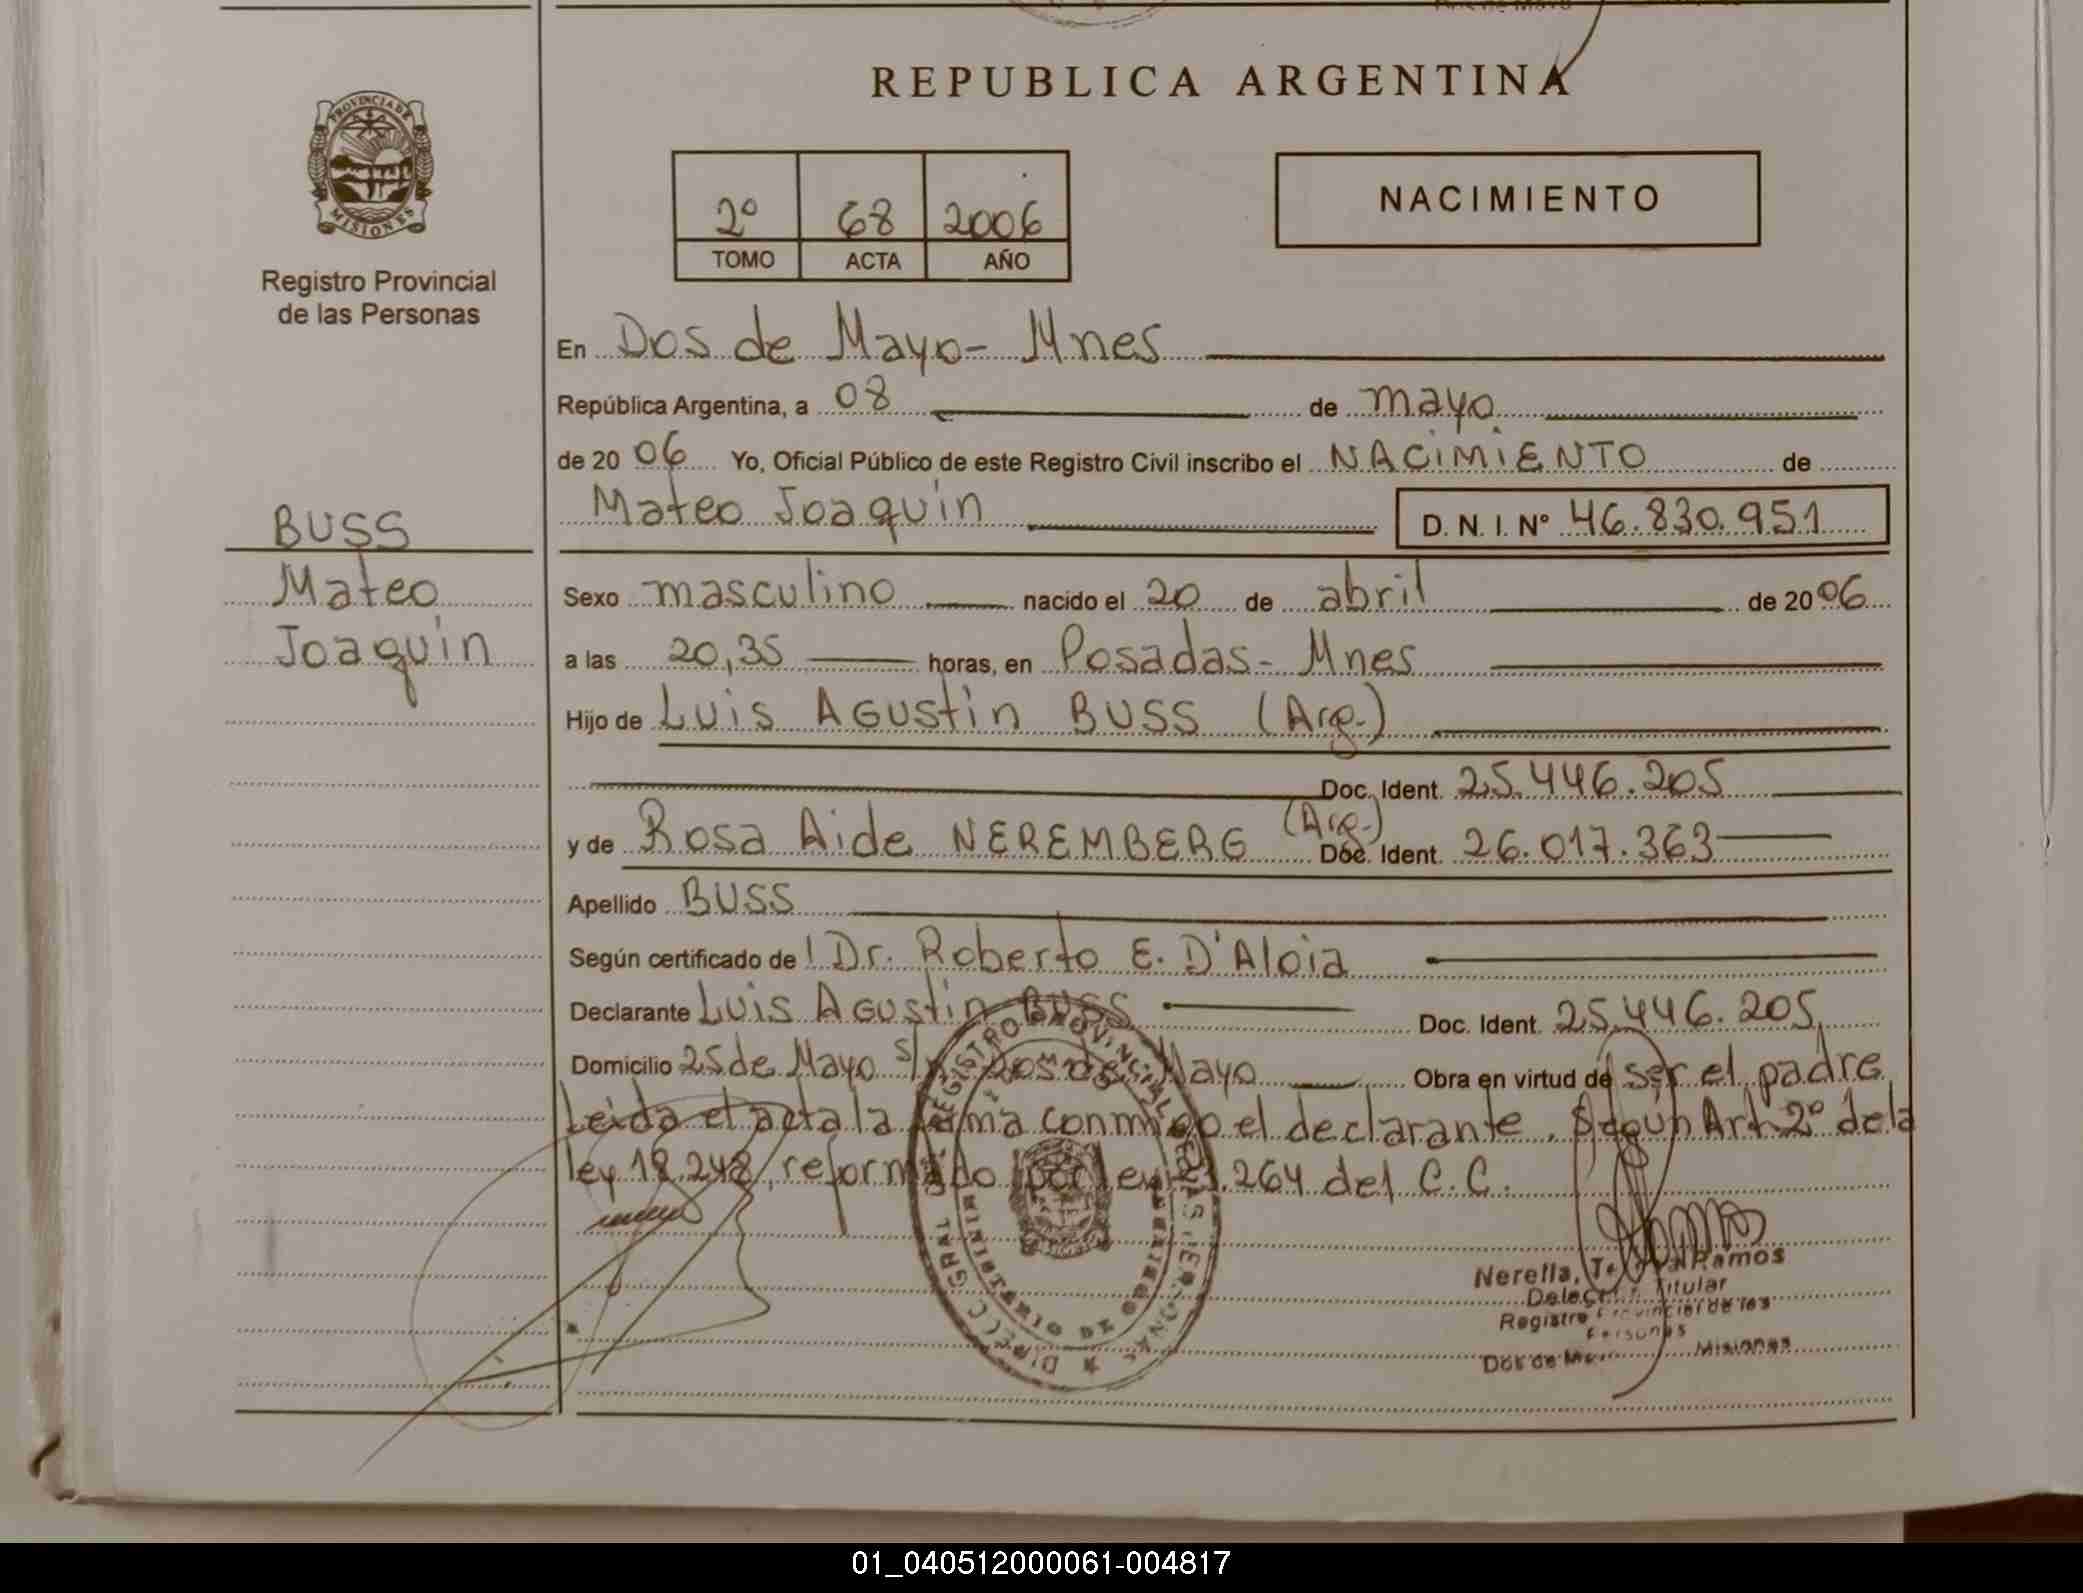 REPUBLICA ARGENTINA
PROVINCIA DE
MISIONES
Registro Provincial
de las Personas
2º 68 2006
TOMO ACTA AÑO
NACIMIENTO
En Dos de Mayo- Mnes
República Argentina, a 08 de mayo
de 2006 Yo, Oficial Público de este Registro Civil inscribo el NACIMIENTO de
Mateo Joaquin D. N. I. Nº 46.830.951
BUSS
Mateo
Joaquin
Sexo masculino nacido el 20 de abril de 2006
a las 20,35 horas, en Posadas- Mnes
Hijo de Luis Agustin BUSS (Arg.)
Doc. Ident. 25.446.205
y de Rosa Aide NEREMBERG (Arg.) Doc. Ident. 26.017.363
Apellido BUSS
Según certificado de Dr. Roberto E. D'Aloia
Declarante Luis Agustin BUSS Doc. Ident. 25.446.205
Domicilio 25 de Mayo s/n Dos de Mayo Obra en virtud de ser el padre
Leida el acta la firma conmigo el declarante. Según Art. 2º de la
ley 18.248, reformado por ley 23.264 del C.C.
Nerella, Ramos
Titular
Registro Provincial de las
Personas
Dos de Misiones
01_040512000061-004817